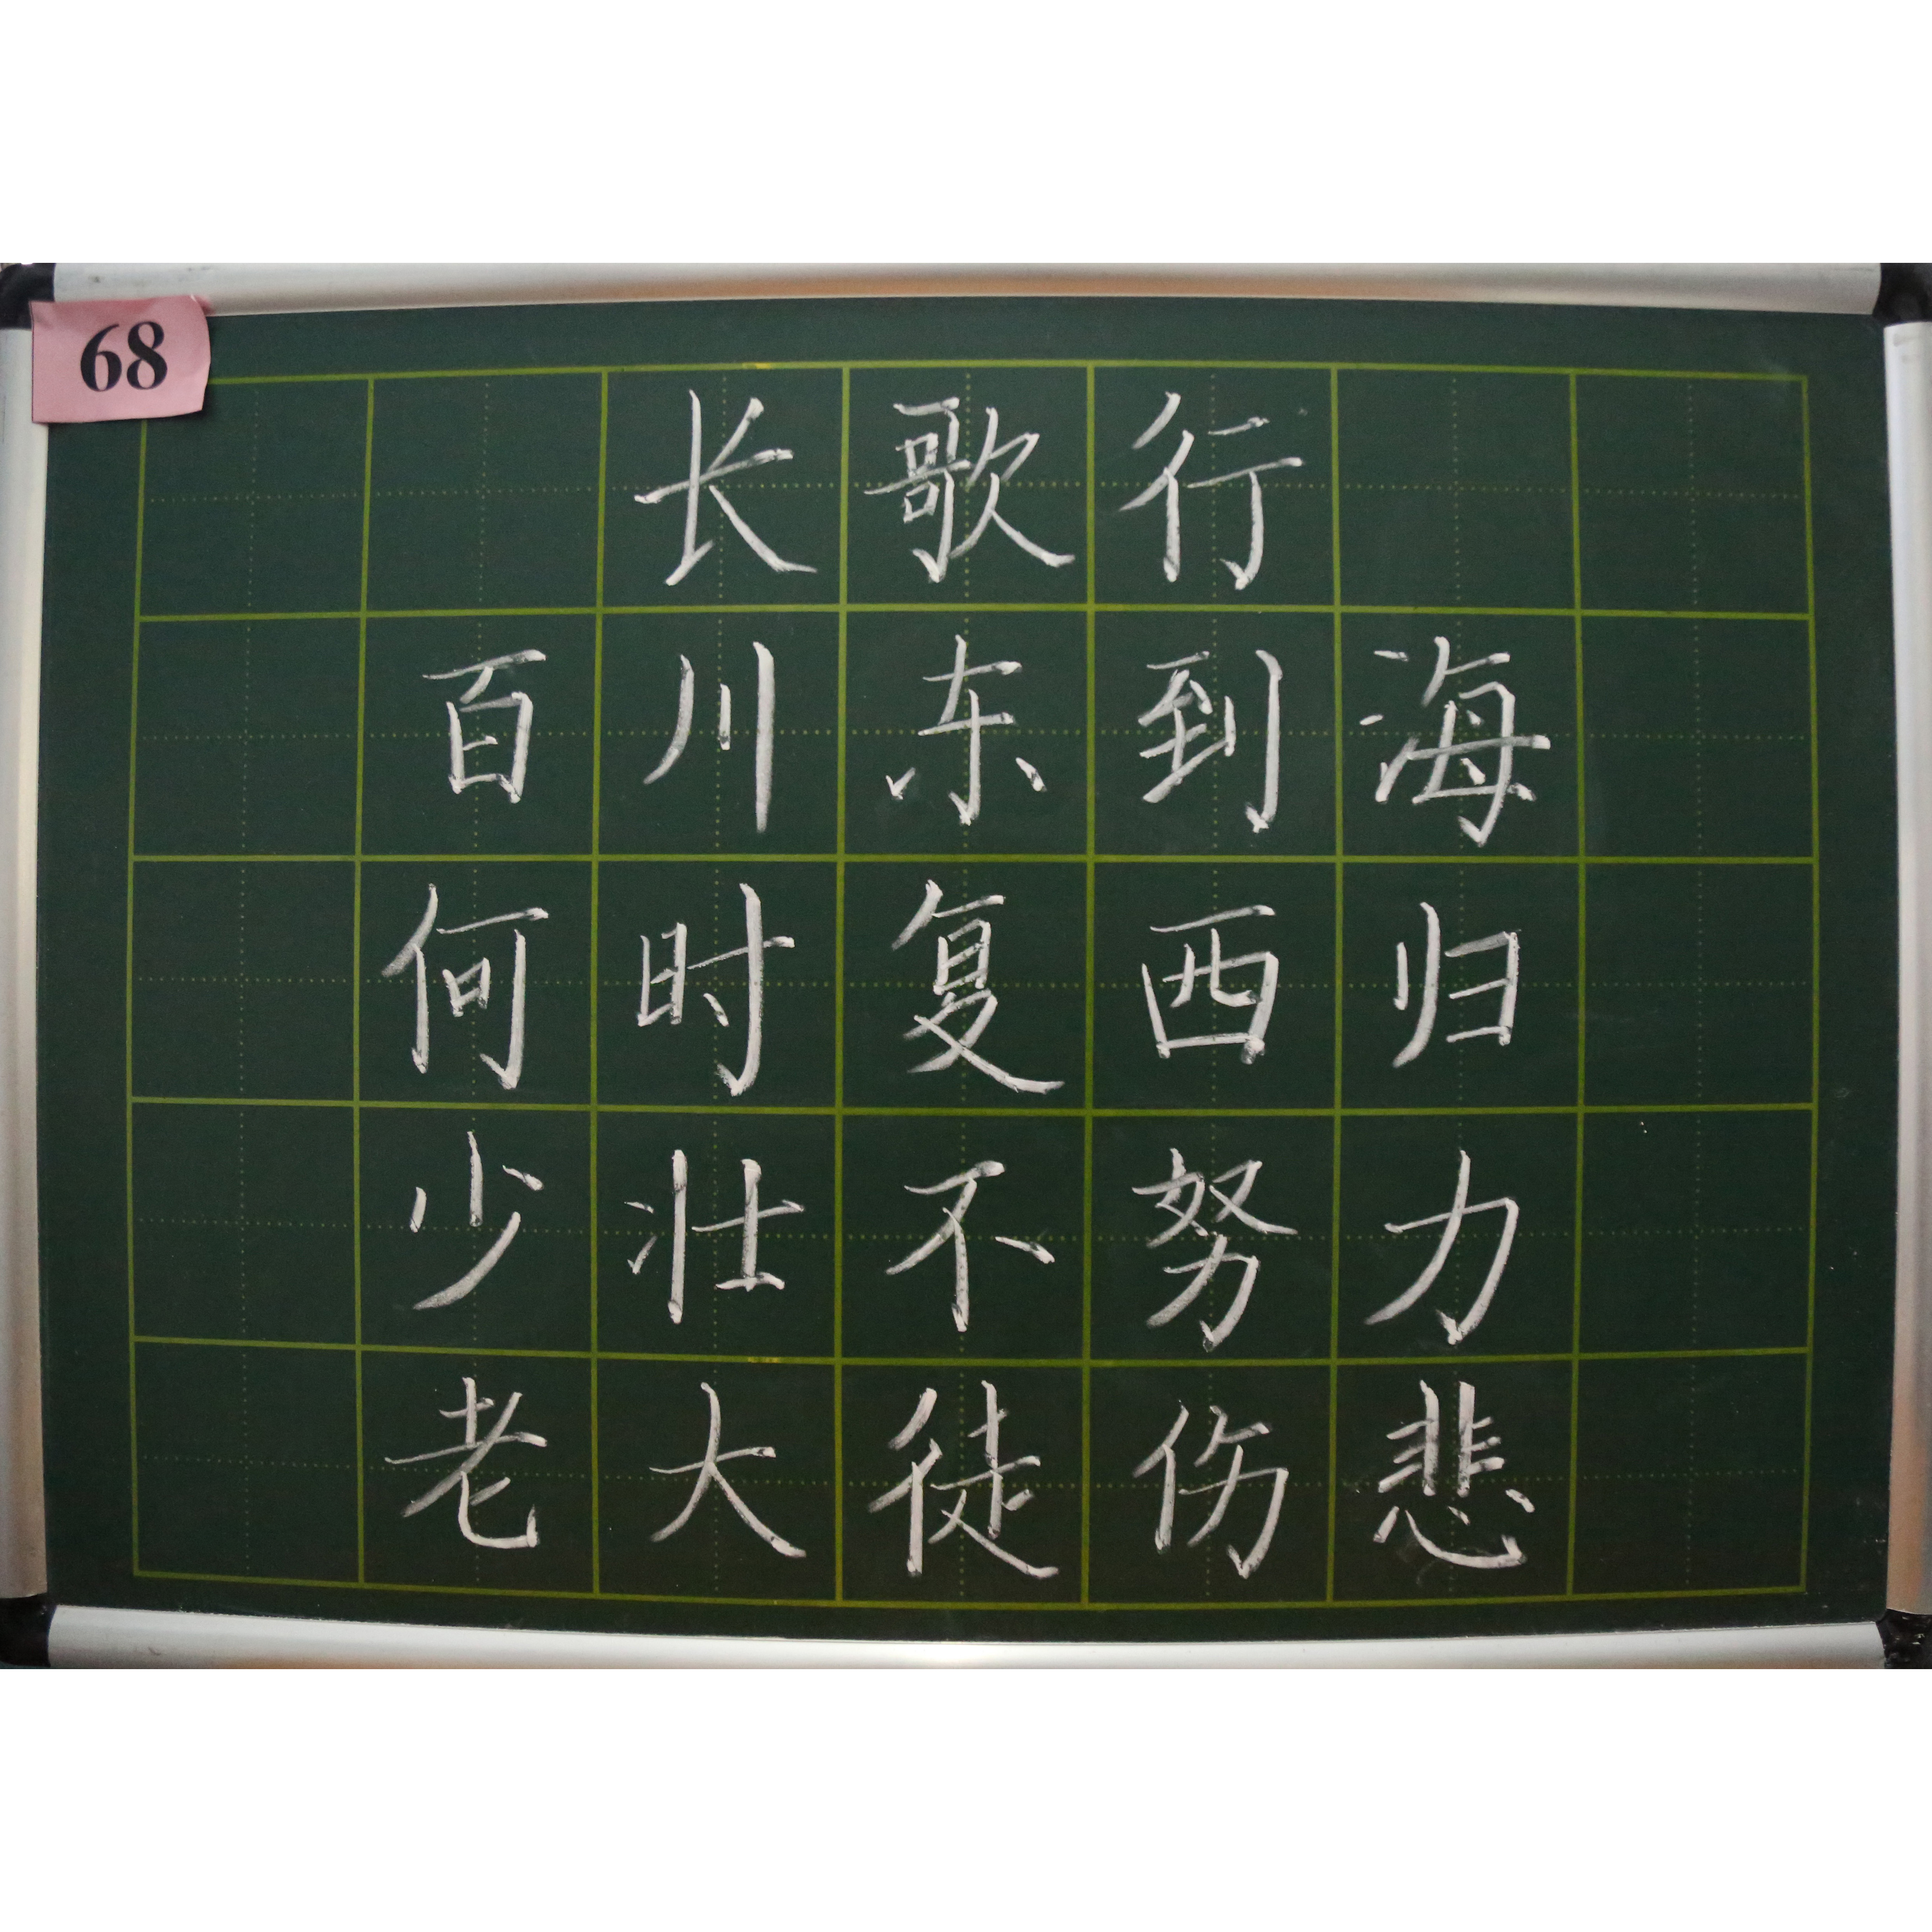 68
长歌行
百川东到海
何时复西归
少壮不努力
老大徒伤悲